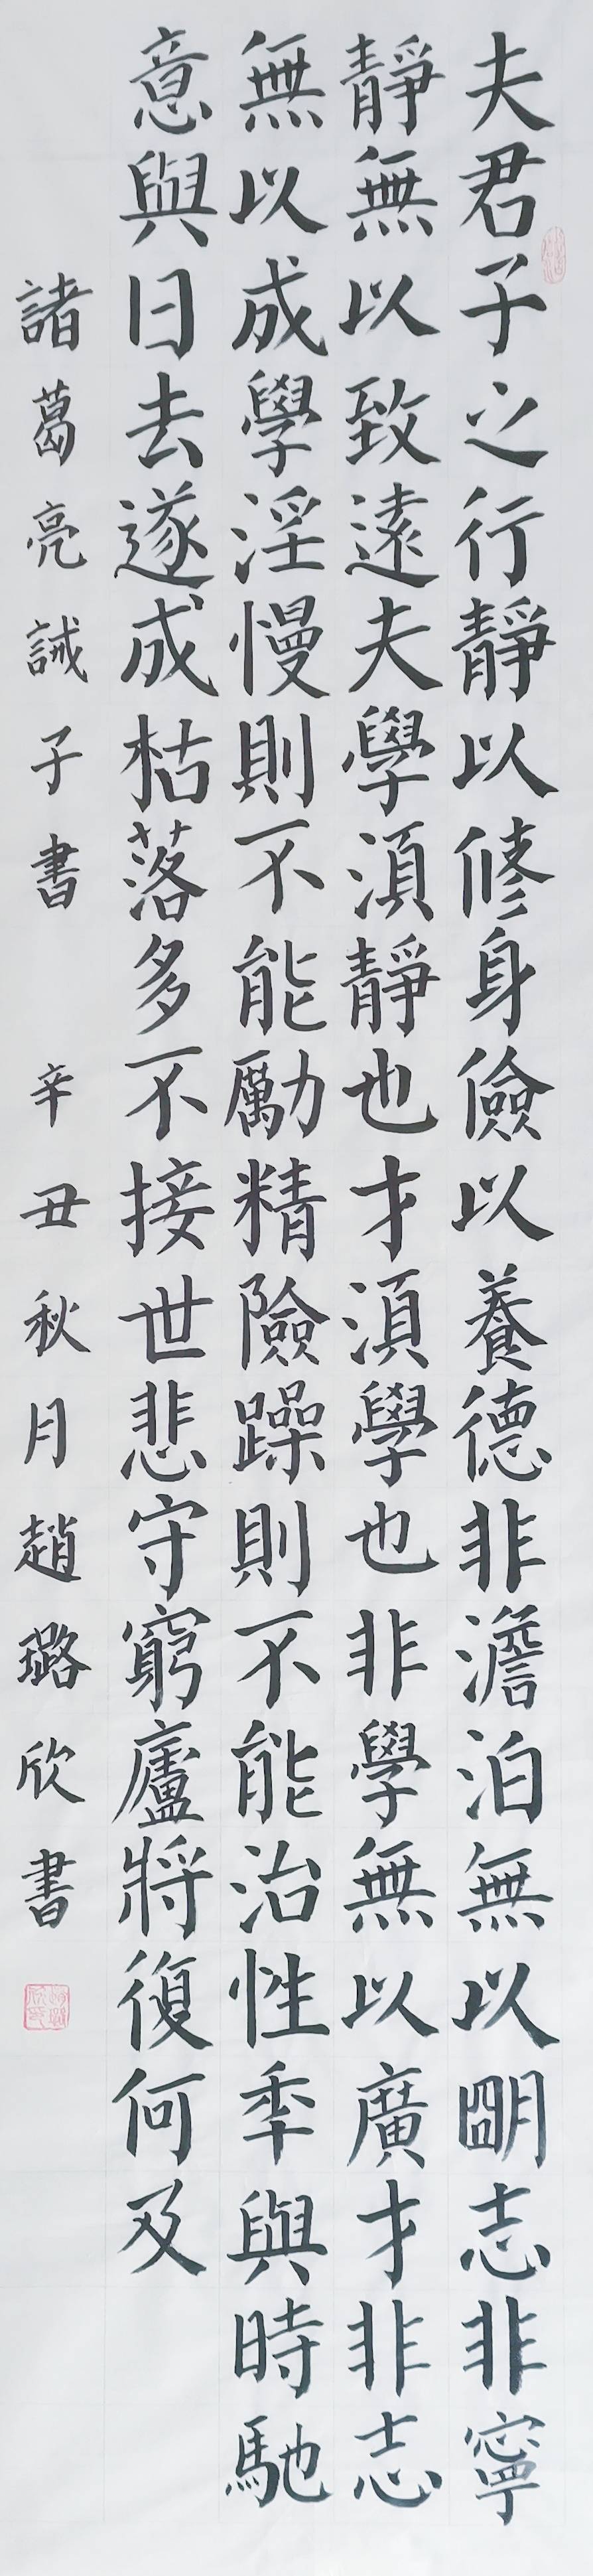 夫君子之行靜以修身儉以養德非澹泊無以明志非寧
靜無以致遠夫學須靜也才須學也非學無以廣才非志
無以成學淫慢則不能勵精險躁則不能治性年與時馳
意與日去遂成枯落多不接世悲守窮廬將復何及
諸葛亮誡子書 辛丑秋月趙璐欣書